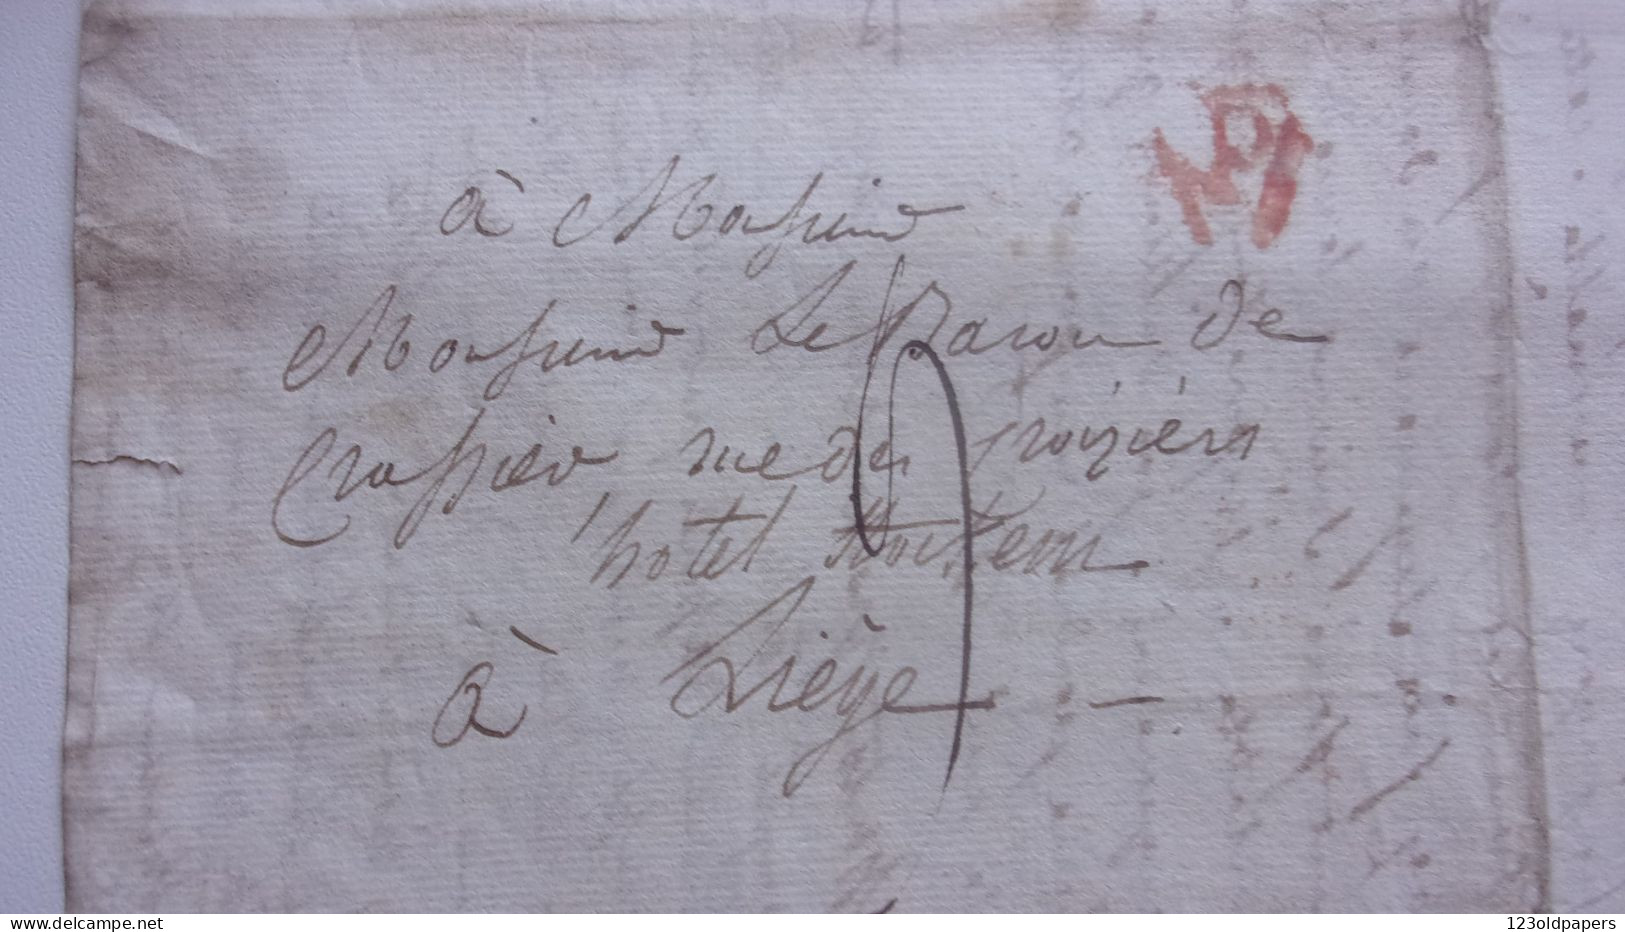 à Monsieur
Monsieur Le Baron de
Crassier rue des Croiziers
hotel
à Liège
delcampe.net
123oldpapers